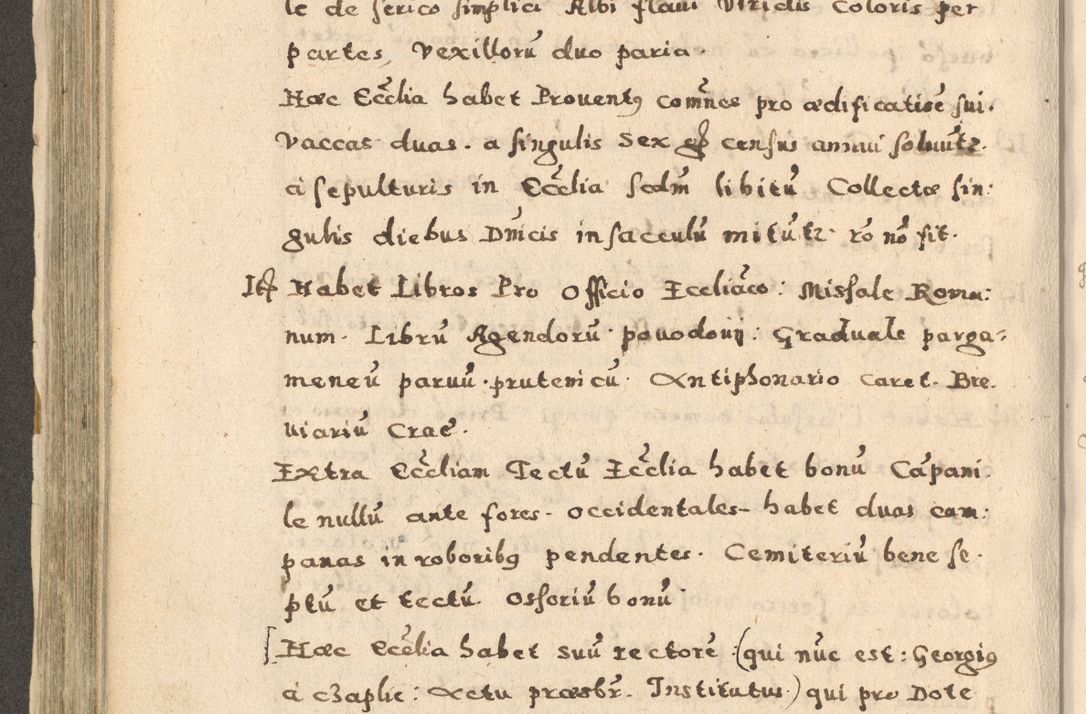 le de serico simplici Albi flaui Viridis Coloris per
partes, Vexillorū duo paria.
Hæc Eccĺia habet Prouentꝯ com̄nes pro ædificatiōe sui.
Vaccas duas. a singulis Sex census annui soluūtr.
à sepulturis in Eccĺia scdm̄ libitū Collectæ sin:
gulis diebus Dn̄icis in sacculū mitūtr. rō nō fit.
Habet Libros Pro Officio Eccliāco: Missale Roma:
num. Librū Agendorū powodowij: Graduale parga:
meneū paruū. prutenicū. Antiphonario caret. Bre.
uiariū Crac̄.
Extra Ecc̄liam Tectū Ecc̄lia habet bonū Cāpani.
le nullū ante fores. occidentales habet duas cam:
panas in roboribꝯ pendentes. Cemiteriū bene se.
ptū et tectū. Ossoriū bonū.
[Hæc Ecc̄lia habet suū rectorē (qui nūc est: Georgiꝯ
à c3aplic: Actu præsbr̄. Institutus.) qui pro Dote